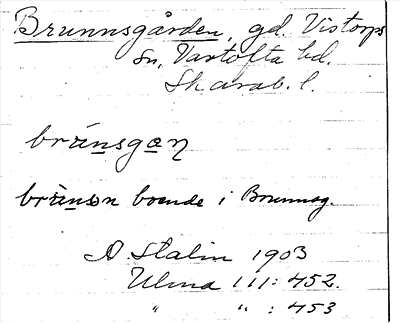 Brunnsgården, gd. Vistorps
sn, Vartofta hd.
Skarab. l.
brùnsgan
brùnsan boende i Brunnsg.
A. Stalin 1903
Ulma 111:452.
" " : 453